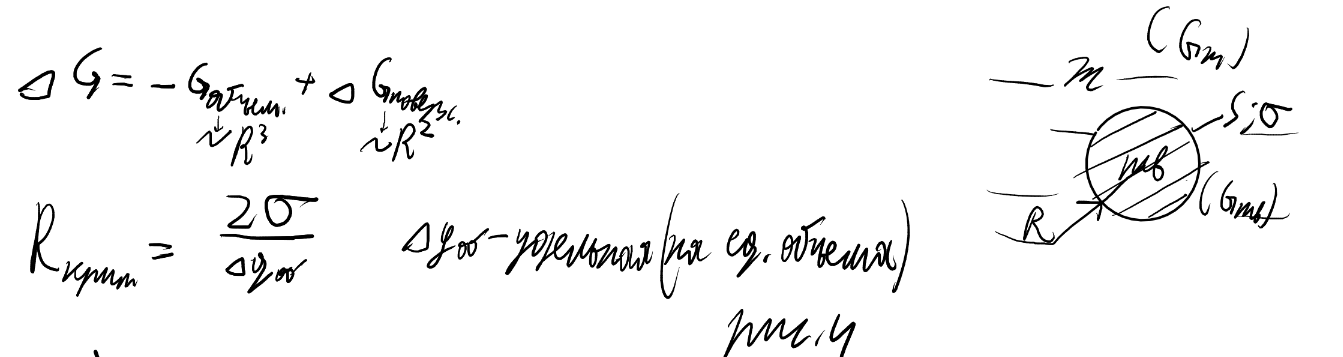 ΔG = - G объем. + ΔG поверхн.
~R³ ~R²
R крит = 2σ / Δg об Δg об - удельная (на ед. объема)
рис. 4
(Gт)
m
S; σ
тв
(Gтв)
R